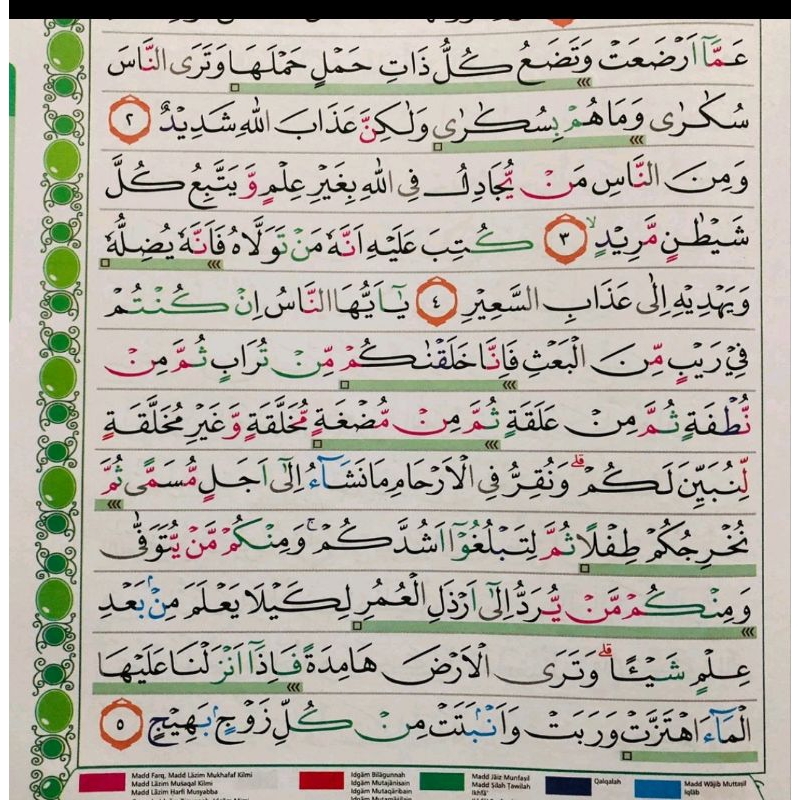 عَمَّآ اَرْضَعَتْ وَتَضَعُ كُلُّ ذَاتِ حَمْلٍ حَمْلَهَا وَتَرَى النَّاسَ
سُكٰرٰى وَمَا هُمْ بِسُكٰرٰى وَلٰكِنَّ عَذَابَ اللّٰهِ شَدِيْدٌ ٢
وَمِنَ النَّاسِ مَنْ يُّجَادِلُ فِى اللّٰهِ بِغَيْرِ عِلْمٍ وَّيَتَّبِعُ كُلَّ
شَيْطٰنٍ مَّرِيْدٍۙ ٣ كُتِبَ عَلَيْهِ اَنَّهٗ مَنْ تَوَلَّاهُ فَاَنَّهٗ يُضِلُّهٗ
وَيَهْدِيْهِ اِلٰى عَذَابِ السَّعِيْرِ ٤ يٰٓاَيُّهَا النَّاسُ اِنْ كُنْتُمْ
فِيْ رَيْبٍ مِّنَ الْبَعْثِ فَاِنَّا خَلَقْنٰكُمْ مِّنْ تُرَابٍ ثُمَّ مِنْ
نُّطْفَةٍ ثُمَّ مِنْ عَلَقَةٍ ثُمَّ مِنْ مُّضْغَةٍ مُّخَلَّقَةٍ وَّغَيْرِ مُخَلَّقَةٍ
لِّنُبَيِّنَ لَكُمْۗ وَنُقِرُّ فِى الْاَرْحَامِ مَا نَشَاۤءُ اِلٰٓى اَجَلٍ مُّسَمًّى ثُمَّ
نُخْرِجُكُمْ طِفْلًا ثُمَّ لِتَبْلُغُوْٓا اَشُدَّكُمْۚ وَمِنْكُمْ مَّنْ يُّتَوَفّٰى
وَمِنْكُمْ مَّنْ يُّرَدُّ اِلٰٓى اَرْذَلِ الْعُمُرِ لِكَيْلَا يَعْلَمَ مِنْۢ بَعْدِ
عِلْمٍ شَيْـًٔاۗ وَتَرَى الْاَرْضَ هَامِدَةً فَاِذَآ اَنْزَلْنَا عَلَيْهَا
الْمَاۤءَ اهْتَزَّتْ وَرَبَتْ وَاَنْۢبَتَتْ مِنْ كُلِّ زَوْجٍۢ بَهِيْجٍ ٥
Madd Farq, Madd Lāzim Mukhafaf Kilmi
Madd Lāzim Muṡaqal Kilmi
Madd Lāzim Harfi Musyabba
Idgām Bilāgunnah
Idgām Mutajānisain
Idgām Mutaqāribain
Madd Jāiz Munfaṣil
Madd Ṣilah Ṭawīlah
Ikhfā'
Qalqalah
Madd Wājib Muttaṣil
Iqlāb